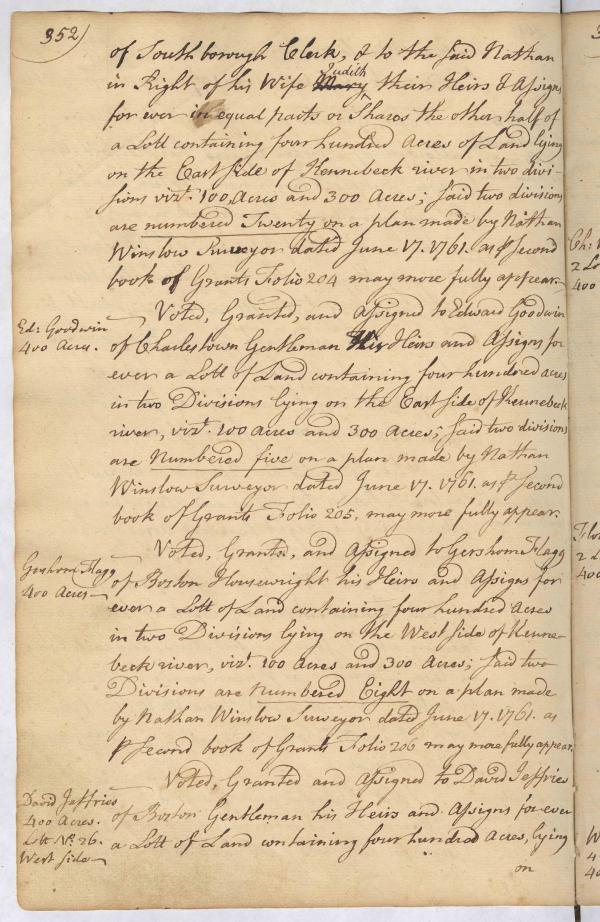 352)
of Southborough Clerk, & to the said Nathan
in Right of his Wife Mary Judith their Heirs & Assigns
for ever in equal parts or Shares the other half of
a Lott containing four hundred Acres of Land lying
on the East side of Kennebeck river in two divi-
sions vizt. 100 Acres and 300 Acres; said two divisions
are numbered Twenty on a plan made by Nathan
Winslow Surveyor dated June 17. 1761. as pr Second
book of Grants Folio 204 may more fully appear.
Ed: Goodwin
400 Acres.
Voted, Granted, and Assigned to Edward Goodwin
of Charlestown Gentleman His Heirs and Assigns for
ever a Lott of Land containing four hundred acres
in two Divisions lying on the East side of Kennebeck
river, vizt. 100 acres and 300 Acres; said two divisions
are Numbered five on a plan made by Nathan
Winslow Surveyor dated June 17. 1761. as pr Second
book of Grants Folio 205, may more fully appear.
Gershom Flagg
400 Acres
Voted, Granted, and Assigned to Gershom Flagg
of Boston Housewright his Heirs and Assigns for
ever a Lott of Land containing four hundred Acres
in two Divisions lying on the West side of Kenne-
beck river, vizt. 100 Acres and 300 Acres; said two
Divisions are numbered Eight on a plan made
by Nathan Winslow Surveyor dated June 17. 1761. as
pr Second book of Grants Folio 206 may more fully appear.
David Jeffries
400 Acres.
Lott No. 26.
West side
Voted, Granted and assigned to David Jeffries
of Boston Gentleman his Heirs and Assigns for ever
a Lott of Land containing four hundred Acres, lying
on